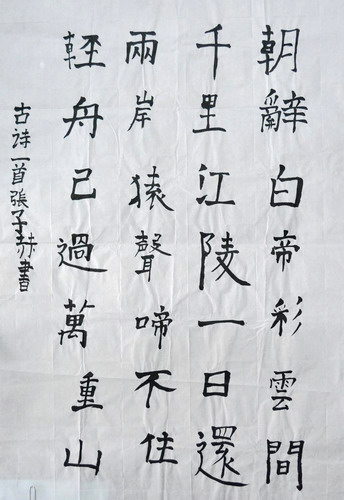 朝辭白帝彩雲間
千里江陵一日還
兩岸猿聲啼不住
輕舟已過萬重山
古诗一首張子赫書